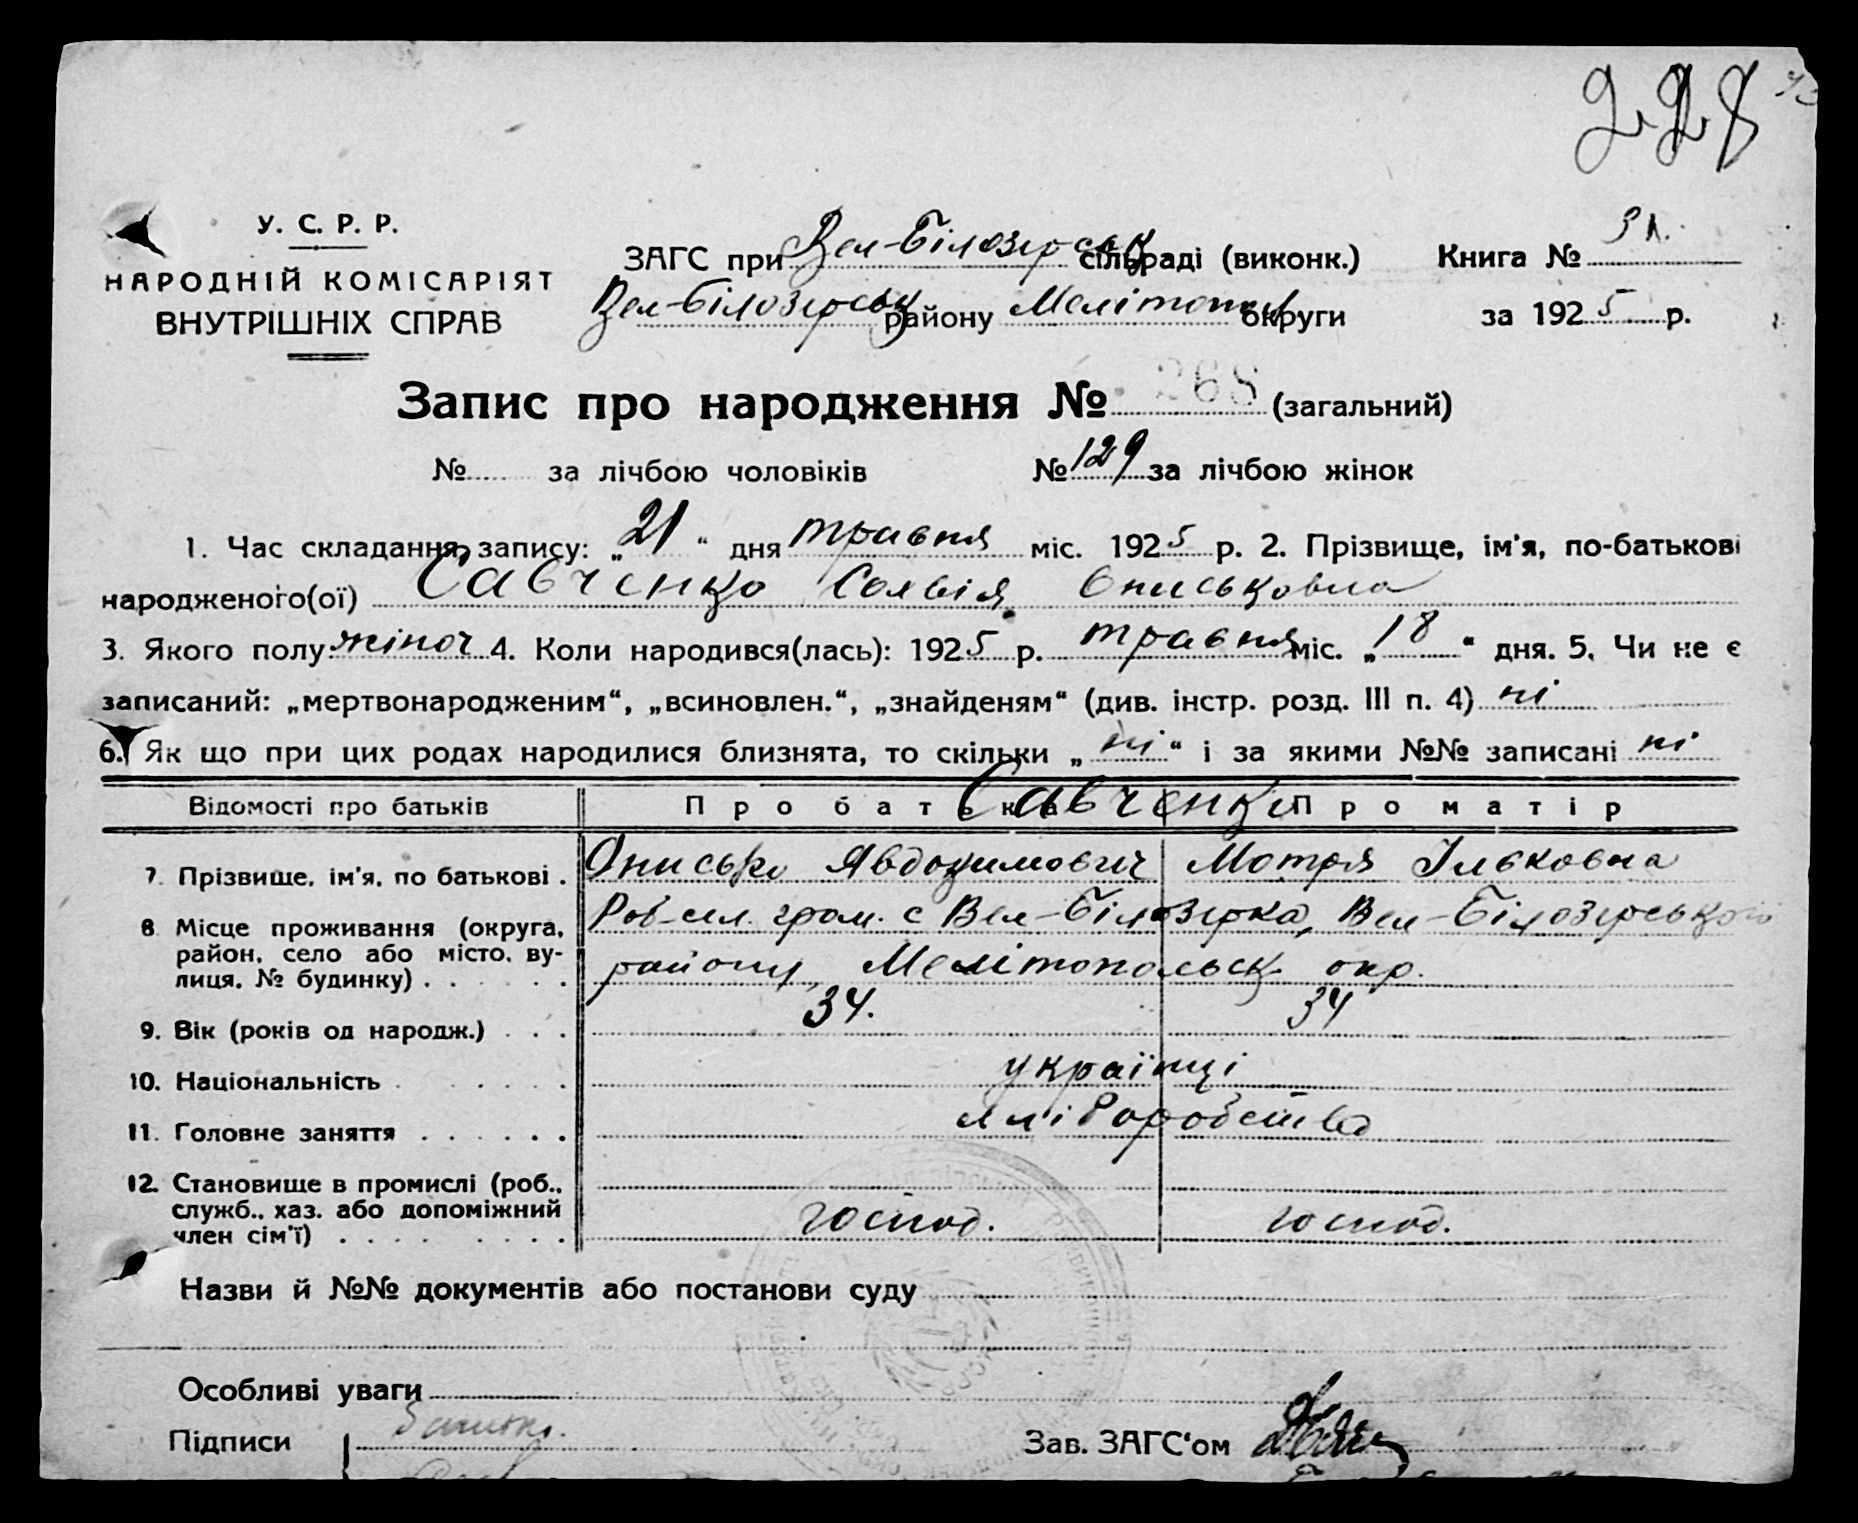 228
У. С. Р. Р.
НАРОДНІЙ КОМІСАРІЯТ
ВНУТРІШНІХ СПРАВ
ЗАГС при Вел-Білозерськ сільраді (виконк.)
Вел-Білозерськ району Мелітопол округи
Книга № 3 л.
за 1925 р.
Запис про народження № 268 (загальний)
№ за лічбою чоловіків № 129 за лічбою жінок
1. Час складання запису: „21“ дня травня міс. 1925 р. 2. Прізвище, ім'я, по-батькові
народженого(ої) Савченко Софія Ониськовна
3. Якого полу жіноч 4. Коли народився(лась): 1925 р. травня міс. „18“ дня. 5. Чи не є
записаний: „мертвонародженим“, „всиновлен.“, „знайденям“ (див. інстр. розд. III п. 4) ні
6. Як що при цих родах народилися близнята, то скільки „ні“ і за якими №№ записані ні
Відомості про батьків Про батька Про матір
Савченки
7. Прізвище, ім'я, по батькові . Онисько Явдокимович Мотря Ілвковна
8. Місце проживання (округа, район, село або місто, вулиця, № будинку) . . . . . . Роб-сел. гром. с Вел-Білозерка, Вел-Білозерського
району Мелітопольськ окр.
9. Вік (років од народж.) . . . 34. 34
10. Національність . . . . . . українці
11. Головне заняття . . . . . .
12. Становище в промислі (роб., служб., хаз. або допоміжний член сім'ї) . . . . . . . . . господ. господ.
Назви й №№ документів або постанови суду
Особливі уваги
Підписи
Зав. ЗАГС'ом